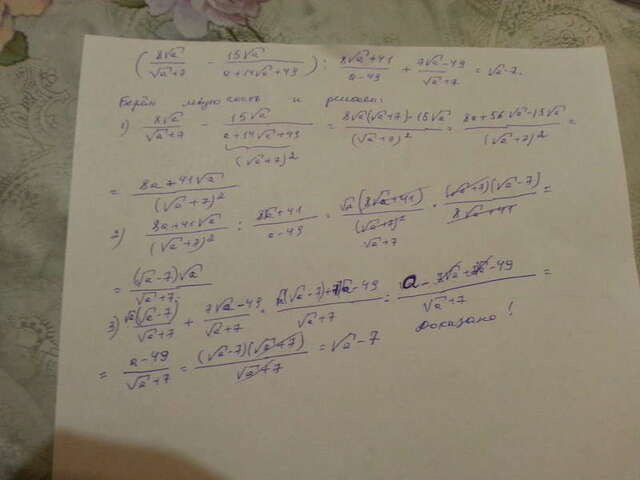 (8√a/(√a+7) - 15√a/(a+14√a+49)) : (8√a+41)/(a-49) + (7√a-49)/(√a+7) = √a-7.
Берём левую часть и решаем:
1) 8√a/(√a+7) - 15√a/(a+14√a+49) = (8√a(√a+7)-15√a)/(√a+7)² = (8a+56√a-15√a)/(√a+7)² =
(√a+7)²
= (8a+41√a)/(√a+7)²
2) (8a+41√a)/(√a+7)² : (8√a+41)/(a-49) = √a(8√a+41)/(√a+7)² · (√a+7)(√a-7)/(8√a+41) =
√a+7
= (√a-7)√a/(√a+7)
3) √a(√a-7)/(√a+7) + (7√a-49)/(√a+7) = (√a(√a-7)+7√a-49)/(√a+7) = (a-7√a+7√a-49)/(√a+7) =
= (a-49)/(√a+7) = (√a-7)(√a+7)/(√a+7) = √a-7
Доказано!